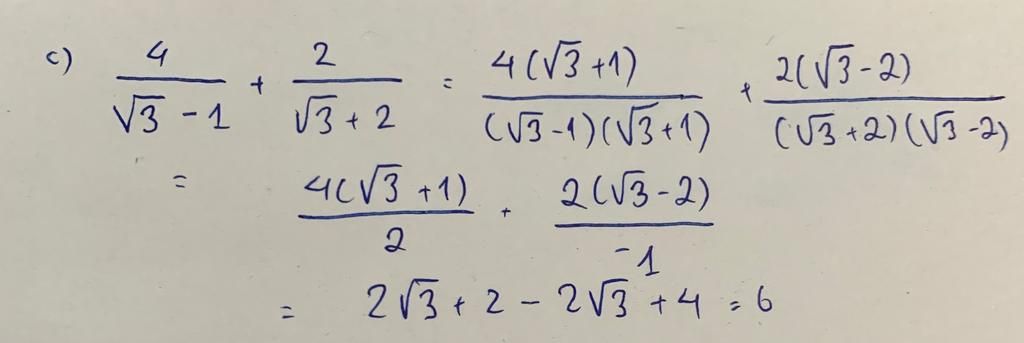 c) 4/(√3 - 1) + 2/(√3 + 2) = 4(√3 + 1)/((√3 - 1)(√3 + 1)) + 2(√3 - 2)/((√3 + 2)(√3 - 2))
= 4(√3 + 1)/2 + 2(√3 - 2)/-1
= 2√3 + 2 - 2√3 + 4 = 6